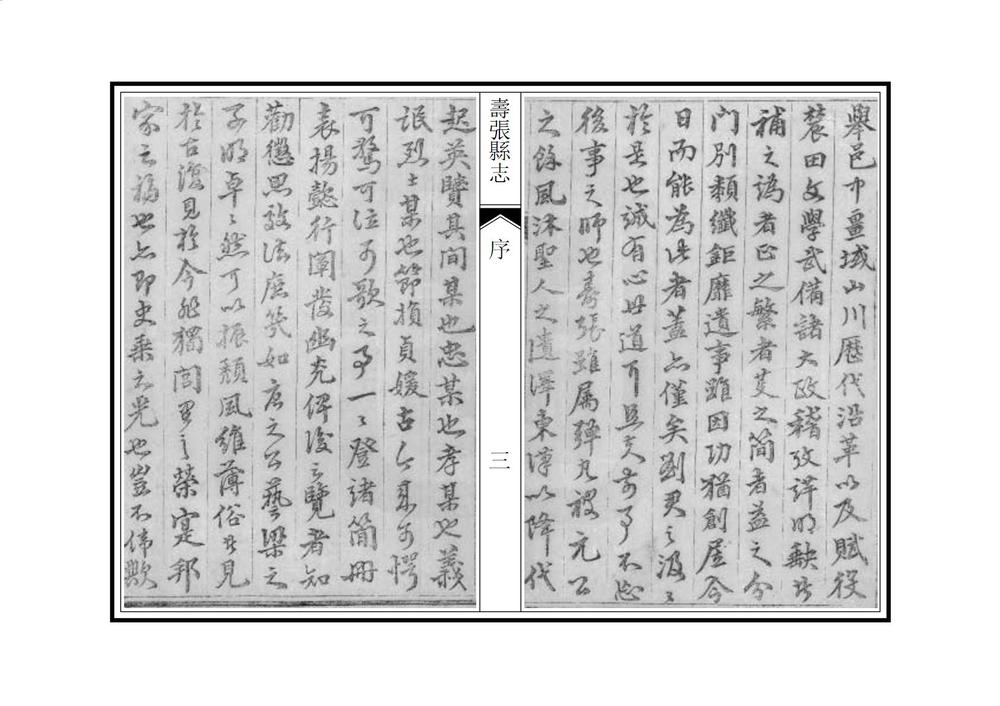 舉邑中畺域山川歷代沿革以及賦役
農田文學武備諸大政稽攷詳明缺者
補之譌者正之繁者芟之簡者益之分
門別類纖鉅靡遺事雖因功猶創居今
日而能為此者蓋亦僅矣劉君之汲汲
於是也誠有心毋道可且夫前事不忘
後事之師也壽張雖属彈丸被元公
之餘風沐聖人之遺澤東漢以降代
壽張縣志
序
三
起英賢其間某也忠某也孝某也義
氓烈士某也節損貞媛古今来可愕
可驚可泣可歌之事一一登諸簡冊
表揚懿行闡發幽光俾後之覽者知
勸懲思效法庶幾如唐之公藝梁之
子明卓卓然可以振頹風維薄俗者見
於古復見於今非獨閭里之榮寔邦
家之福也亦即史乘之光也豈不偉歟